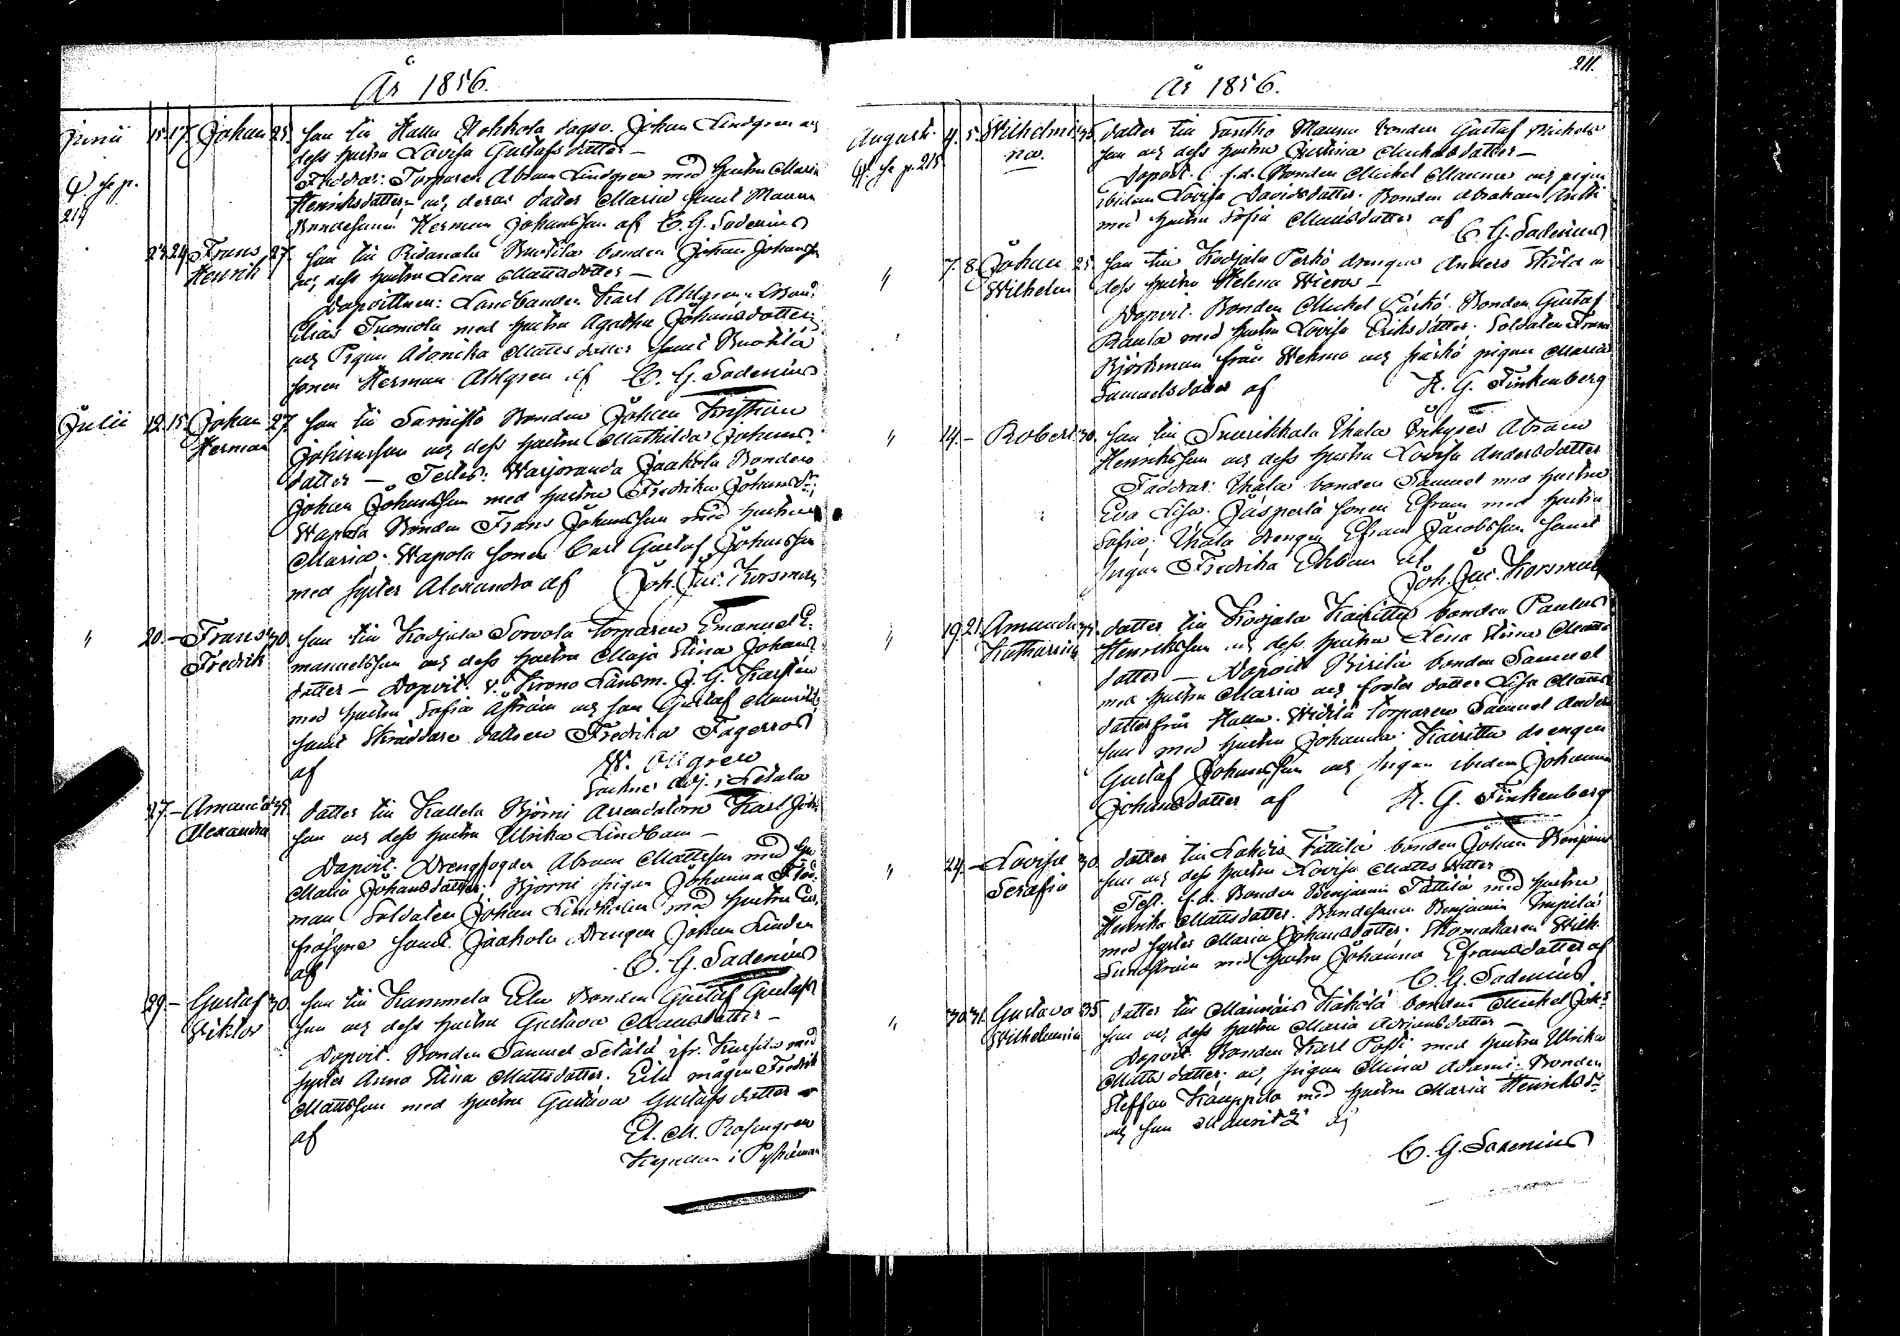 År 1856.
Junii 15. 17. Johan 25. Son till Kallu Kohkola dagsv. Johan Lindgren och
dess hustru Lovisa Gustafsdotter –
Ψ se p. Faddrar: Torparen Abram Lindgren med hustru Maria
219 Henriksdotter och deras dotter Maria samt Mannu
Bondesonen Herman Johansson af C. G. Sadenius
23. 24. Frans 27. Son till Ruotila bonden Johan Johansson
Henrik och dess hustru Lena Mattsdotter –
Dopvittnen: Landbonden Karl Ahlgren
Elias Tuomola med hustru Agatha Johansdotter
och Pigan Mattsdotter samt Ruohila
sonen Herman Ahlgren af C. G. Sadenius
Julii 12. 15. Johan 27. Son till Sarnisto Bonden Johan Kristian
Herman Johansson och dess hustru Mathilda Johans-
dotter – Testes: Warjoranda Jaakola Bonden
Johan Johansson med hustru Fredrika Johansdr;
Wapola Bonden Frans Johansson med hustru
Maria; Wapola sonen Carl Gustaf Johansson
med syster Alexandra af Joh. Jac. Korsman
" 20. – Frans 30. Son till Kodjala Sorvola torparen Emanuel E-
Fredrik manuelsson och dess hustru Maja Stina Johans
dotter – Dopvit. v. Krono Länsm. J. G. Karstén
med hustru Sofia Åström och son Gustaf Mauritz
samt Skräddare dottren Fredrika Fagerroos
af W. Ollgren
Sockne Adj. i Letala
27. – Amanda 35. dotter till Kallela Björni Arrendatorn Karl Johs
Alexandra son och dess hustru Ulrika Lindbom –
Dopvit. Drengfogden Abram Mattsson med hu
Maria Johansdotter; Björni pigan Johanna
man Soldaten Johan Lindholm med hustru
samt Jaakola Drengen Johan Linden
af C. G. Sadenius
29. – Gustaf 30. Son till Kammela Eilu Bonden Gustaf Gustafs
Viktor son och dess hustru Gustava Mansdotter –
Dopvit. Bonden Samuel Setälä ifr. Kursila med
syster Anna Stina Mattsdotter. Eilu mågen Fredrik
Mattsson med hustru Gustava Gustafsdotter –
af El. M. Rosengren
Kapellan i Pyhämaa
211.
År 1856.
Augusti 4. 5. Wilhelmi- 35. dotter till Santtio Mannu bonden Gustaf Michels
Ψ se p. 215 na. son och dess hustru Justina Michelsdotter –
Dopvit. f.d. Bonden Michel Mannu och pigan
ibidem Lovisa Davidsdotter. Bonden Abraham Antti
med hustru Sofia Mattsdotter af
C. G. Sadenius
" 7. 8. Johan 25. Son till Kodjala Perkö drengen Anders Sköld och
Wilhelm dess hustru Helena Wieroos –
Dopvit. Bonden Michel Pärkö. Bonden Gustaf
Rauta med hustru Lovisa Eriksdotter. Soldaten Frans
Björkman från Wehmo och Pärkö pigan Maria
Samuelsdotter af K. G. Finkenberg
" 14. – Robert 30. Son till Suurikkala Uhala Inhyses Abram
Henriksson och dess hustru Lovisa Andersdotter
Faddrar: Uhala bonden Samuel med hustru
Eva Lisa. Jäsperlä sonen Efram med hustru
Sofia. Uhala drengen Efram Jacobsson samt
pigan Fredrika Ekbom af
Joh. Jac. Korsman
" 19. 21. Amanda 35. dotter till Kodjala Kairittu bonden Paulus
Katharina Henriksson och dess hustru Lena Stina Matts
dotter – Dopvit. Birilä bonden Samuel
med hustru Maria och foster dotter Lisa Matts
dotter från Kallu. Widilä torparen Samuel Anders
son med hustru Johanna. Kairittu drengen
Gustaf Johansson och pigan ibidem Johanna
Johansdotter af K. G. Finkenberg
" 24. – Lovisa 30. dotter till Lahdis Tättilä bonden Johan Benjamins
Serafia son och dess hustru Lovisa Matts dotter –
Test. f.d. Bonden Benjamin Tättilä med hustru
Henrika Mattsdotter. Bondesonen Benjamin
med syster Maria Johansdotter. Skomakaren Wilh.
Sundström med hustru Johanna Eframsdotter af
C. G. Sadenius
" 30. 31. Gustava 35. dotter till Männäis Käkölä bonden Michel Johs
Wilhelmina son och dess hustru Maria Adriansdotter –
Dopvit. Bonden Karl Posti med hustru Ulrika
Matts dotter. och pigan Mina Adami. Bonden
Steffan Kauppila med hustru Maria Henriksdr
och son Mauritz af
C. G. Sadenius